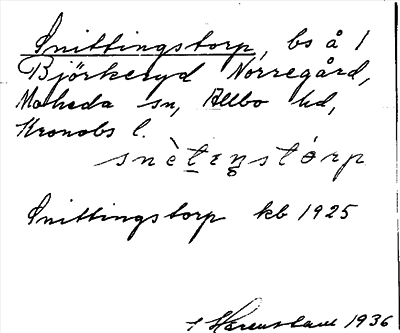 Snittingstorp, bs å 1
Björkeryd Norregård,
Moheda sn, Allbo hd,
Kronobs l.
snètenstórp
Snittingstorp kb 1925
1936